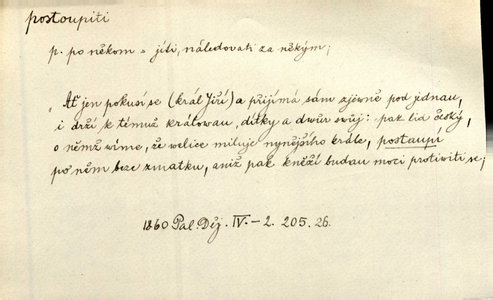 postoupiti
p. po někom = jíti, následovati za někým;
„Ať jen pokusí se (král Jiří) a přijímá sám zjewně pod jednau,
i drží k témuž králowau, dítky a dwůr swůj: pak lid český,
o němž wíme, že welice miluje nynějšího krále, postaupí
po něm beze zmatku, aniž pak kněží budau moci protiwiti se;
1860 Pal. Děj. IV.-2. 205. 26.